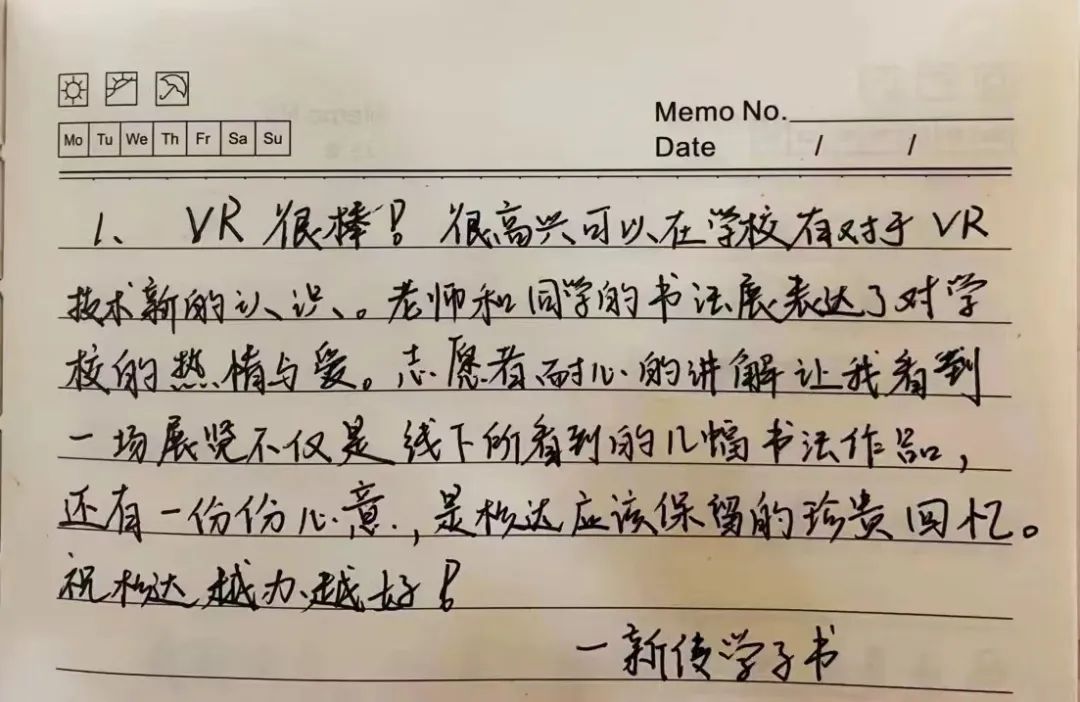 Memo No.
Mo Tu We Th Fr Sa Su
Date / /
1、 VR 很棒！很高兴可以在学校有对于 VR
技术新的认识。老师和同学的书法展表达了对学
校的热情与爱。志愿者耐心的讲解让我看到
一场展览不仅是线下所看到的几幅书法作品，
还有一份份心意，是松达应该保留的珍贵回忆。
祝松达越办越好！
一新传学子书